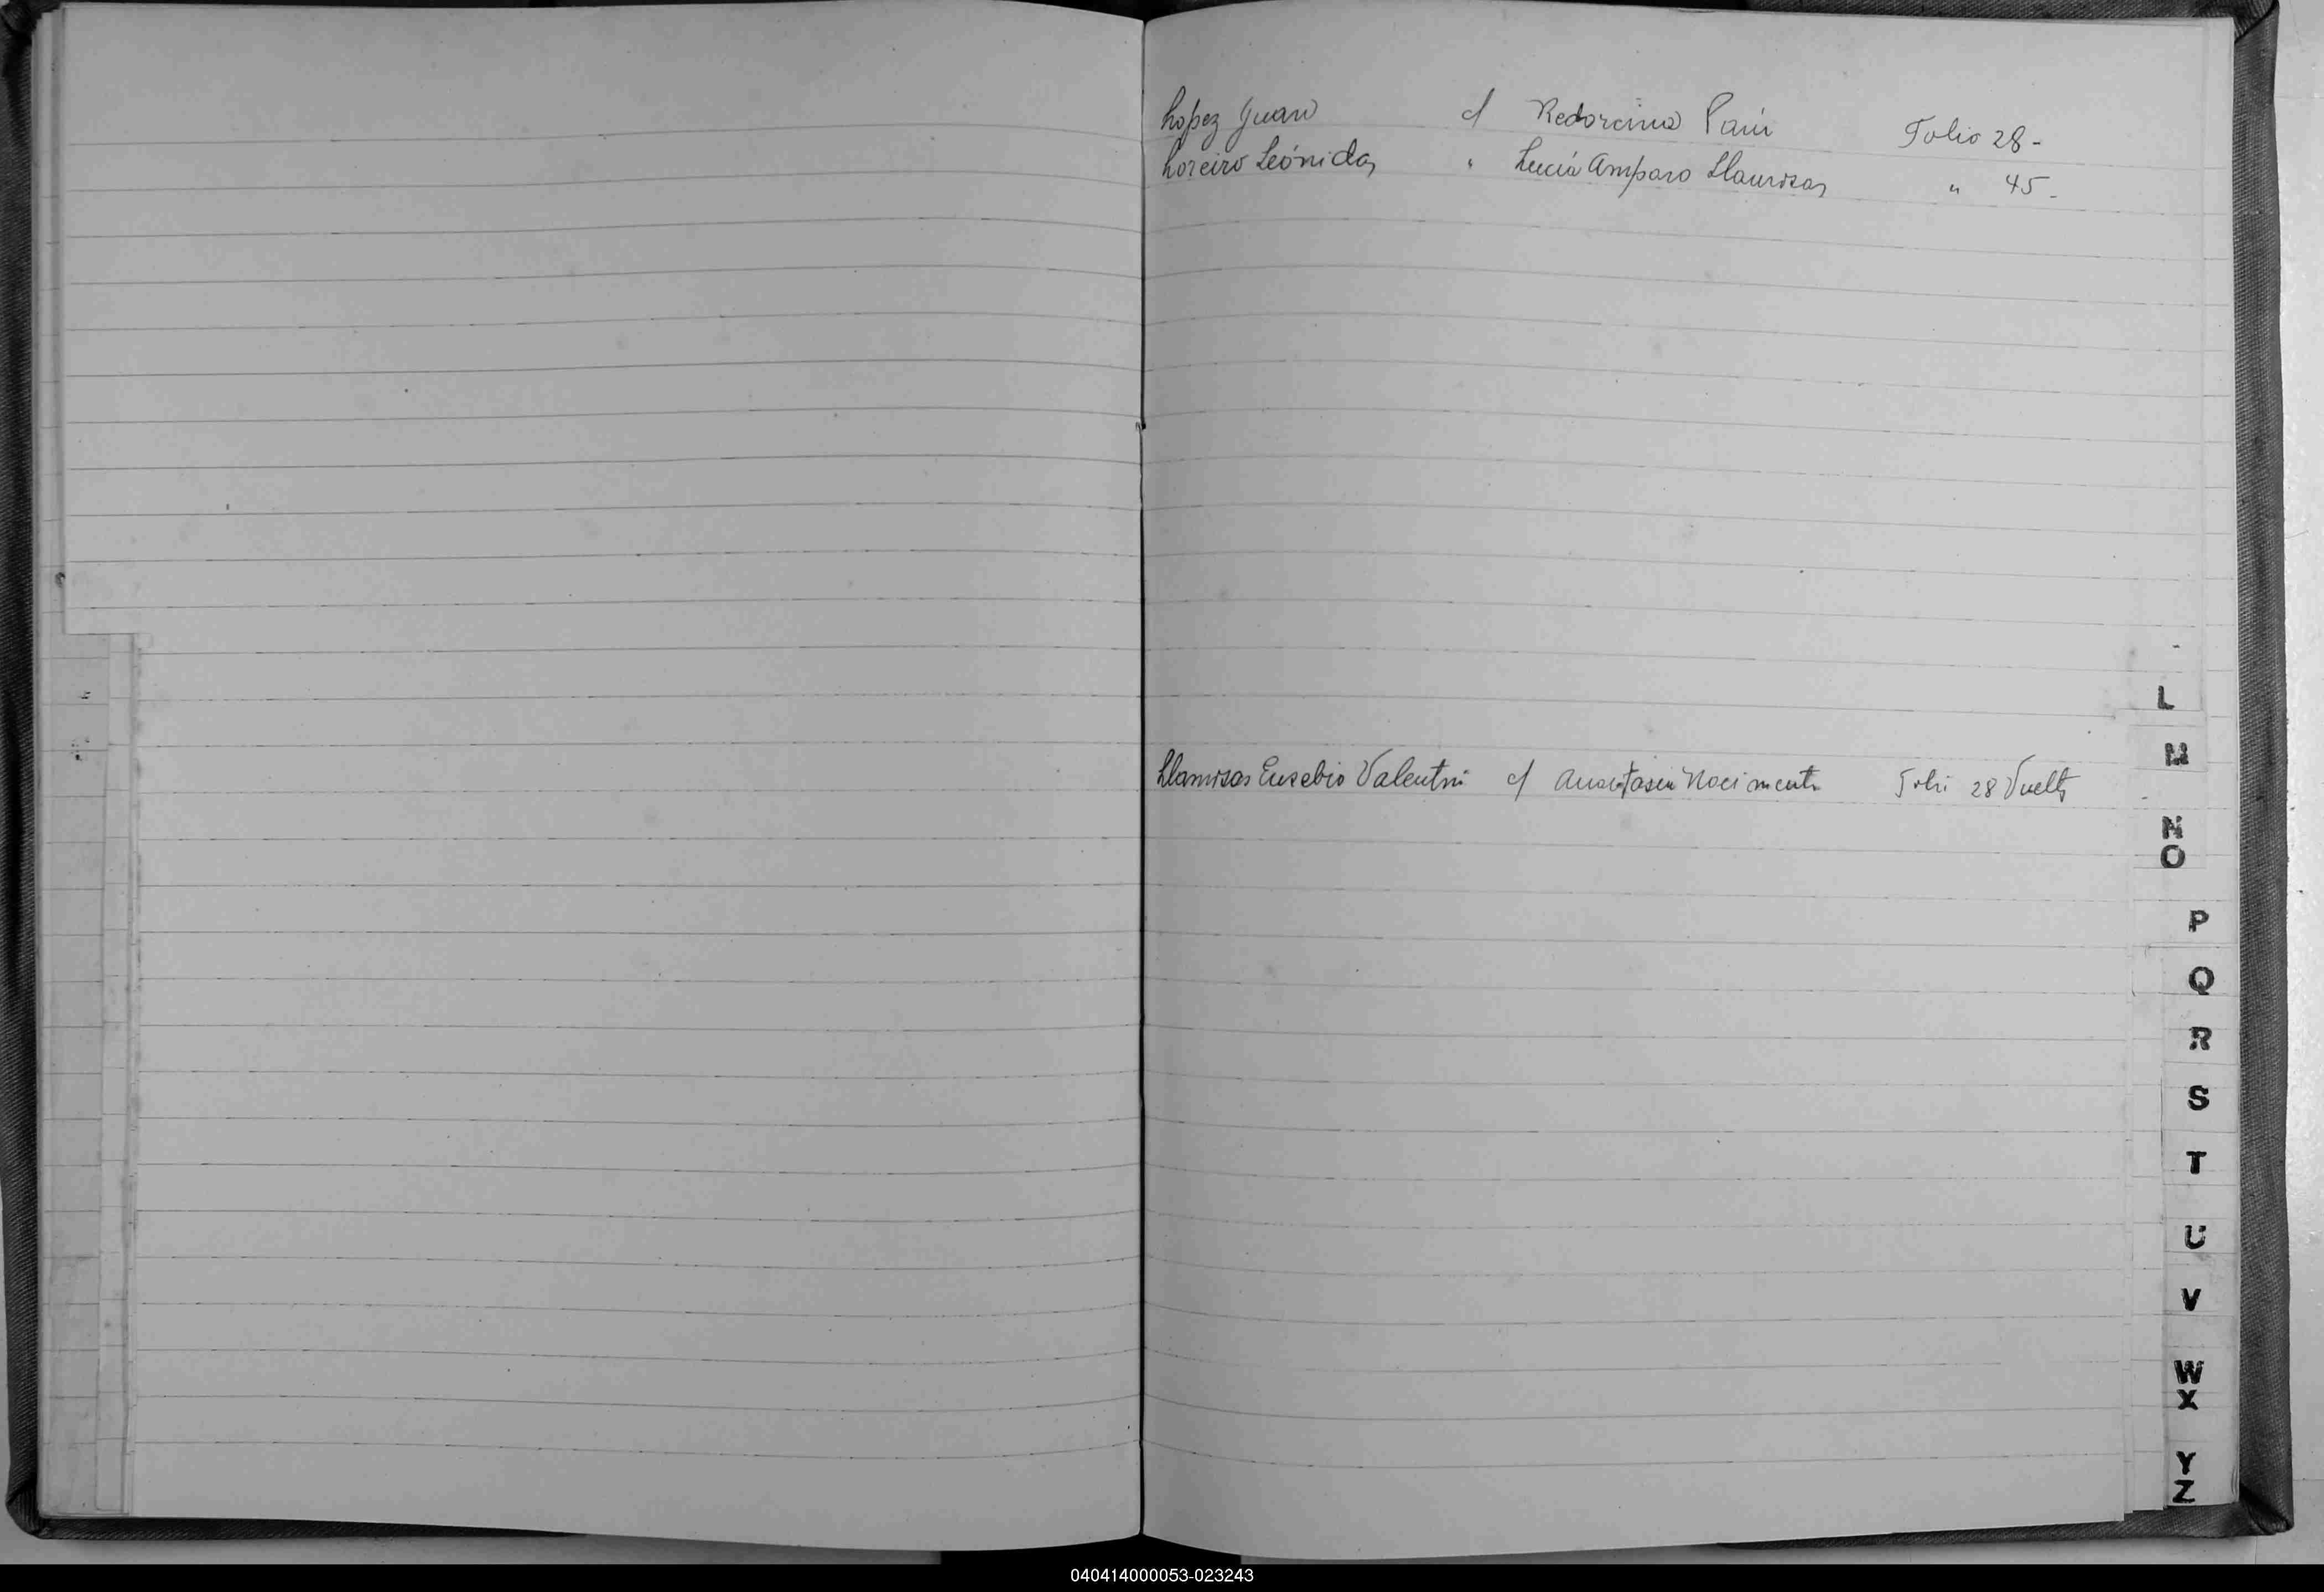 Lopez Juan c/ Redorcina Paiu Folio 28-
Loreiro Leónidas " Lucía Amparo Llamosas " 45-
L
M
Llamosas Eusebio Valentin c/ Anastasia Nacimento Folio 28 Vuelta
N
O
P
Q
R
S
T
U
V
W
X
Y
Z
040414000053-023243